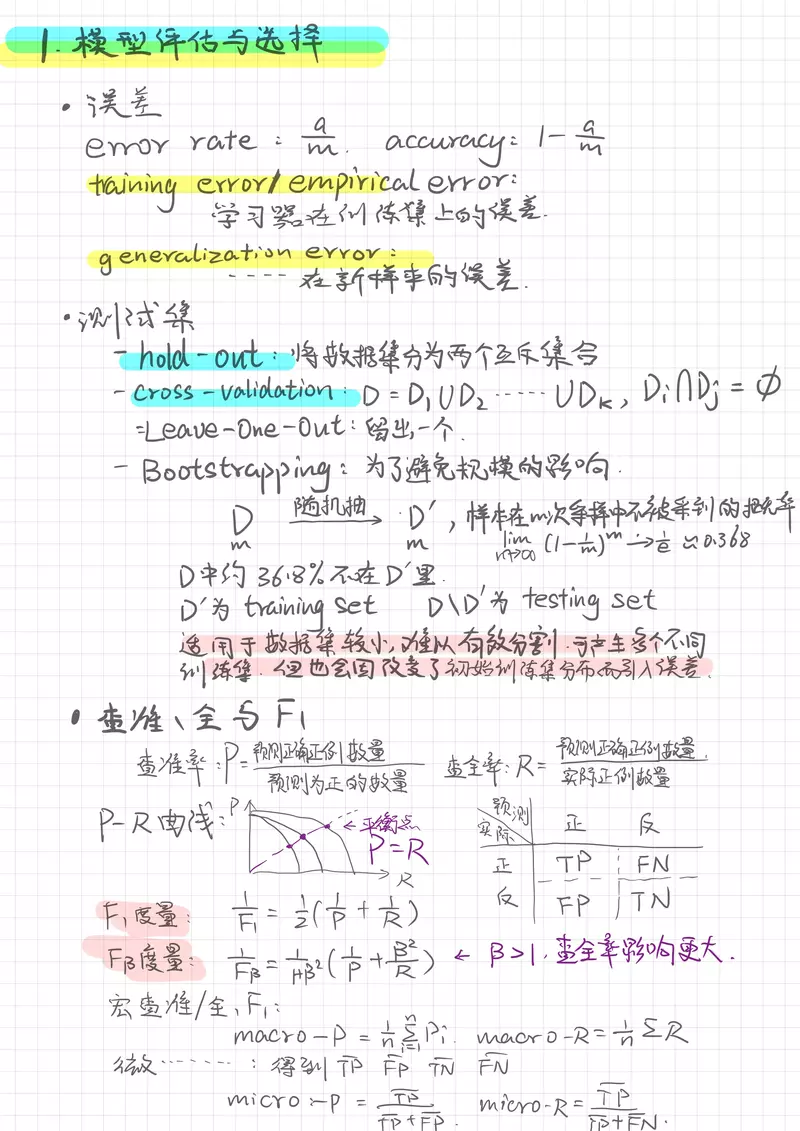 1. 模型评估与选择
• 误差
error rate : a/m. accuracy: 1 - a/m
training error/empirical error:
学习器在训练集上的误差.
generalization error:
---- 在新样本的误差.
• 测试集
- hold-out: 将数据集分为两个互斥集合
- cross-validation: D = D₁∪D₂ ······ ∪Dₖ, Dᵢ∩Dⱼ = ∅
=Leave-One-Out: 留出一个.
- Bootstrapping: 为了避免规模的影响.
D 随机抽 → D′, 样本在m次采样中不被采到的概率
m m lim m→∞ (1-1/m)^m → 1/e ≈ 0.368
D中约36.8%不在D′里.
D′为 training set D\D′为 testing set
适用于数据集较小, 难以有效分割. 可产生多个不同
训练集. 但也会因改变了初始训练集分布而引入误差.
• 查准、全与F₁
查准率: P = 预测正确正例数量/预测为正的数量 查全率: R = 预测正确正例数量/实际正例数量
P-R曲线: P R ← 平衡点 P=R
预测 实际 正 反
正 TP FN
反 FP TN
F₁度量: 1/F₁ = 1/2(1/P + 1/R)
Fβ度量: 1/Fβ = 1/1+β²(1/P + β²/R) ← β>1, 查全率影响更大.
宏查准/全, F₁:
macro-P = 1/n Σⁿᵢ₌₁ Pᵢ. macro-R = 1/n ΣR
微······ : 得到 T̅P̅ F̅P̅ T̅N̅ F̅N̅
micro-P = T̅P̅/T̅P̅+F̅P̅. micro-R = T̅P̅/T̅P̅+F̅N̅.